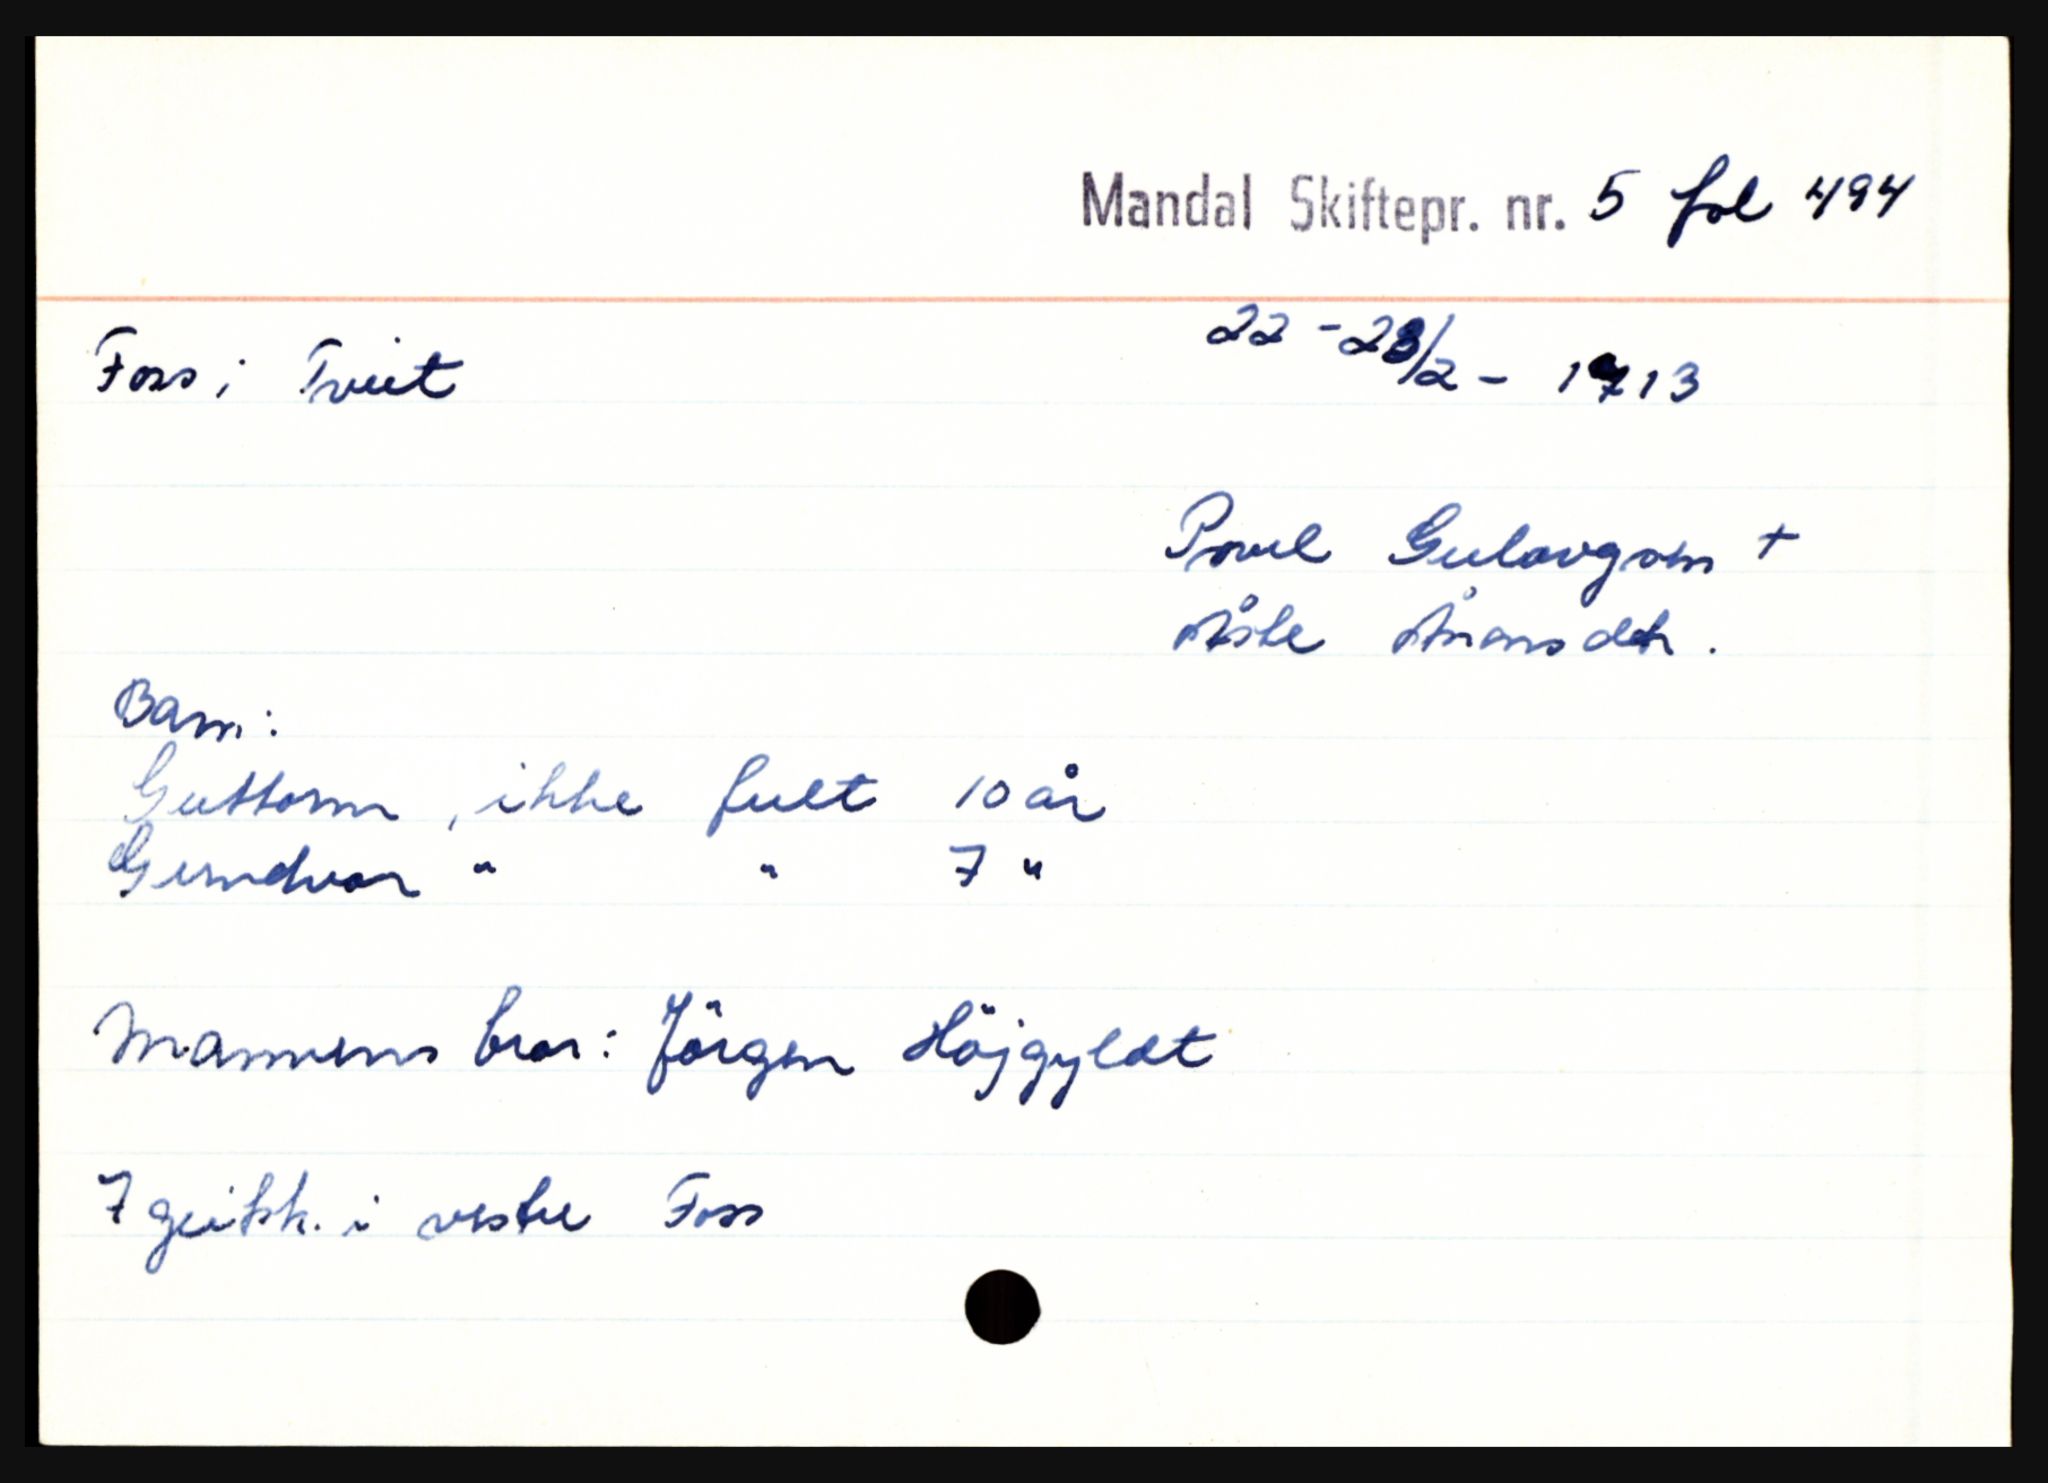 Mandal Skiftepr. nr. 5 fol 494
Foss i Tveit
22 - 23/2 - 1713
Povel Gulovgsen +
Åste Ånonsdtr.
Barn:
Guttorm, ikke fult 10 år
Gundvor " " 7 "
Mannens bror: Jörgen Höjgyldt
7 geitsk. i vestre Foss